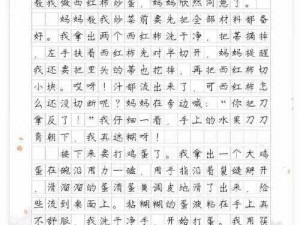 教我做西红柿炒蛋，妈妈欣然同意了。
妈妈教我炒菜前要先把全部材料都备
好。我拿出两个西红柿洗干净，把蒂摘掉，
左手扶着西红柿先对半切开，妈妈提醒
我还要把里头的蒂也挖掉，再把西红柿切
小块。哎呀！汁都流出来了，可西红柿怎
么还没切断呢？妈妈在旁边喊：“你把刀
拿反了！”我仔细一看，手上的水果刀刀
背朝下，我真迷糊呀！
接下来要打鸡蛋了。我拿出一个大鸡
蛋在碗沿用力一磕，用手指沿着裂缝掰开
，滑溜溜的蛋清蛋黄调皮地滑了出来，险
些流到桌面上。粘糊糊的蛋液粘在手上真
不舒服，我洗干净手，开始打蛋。我用筷